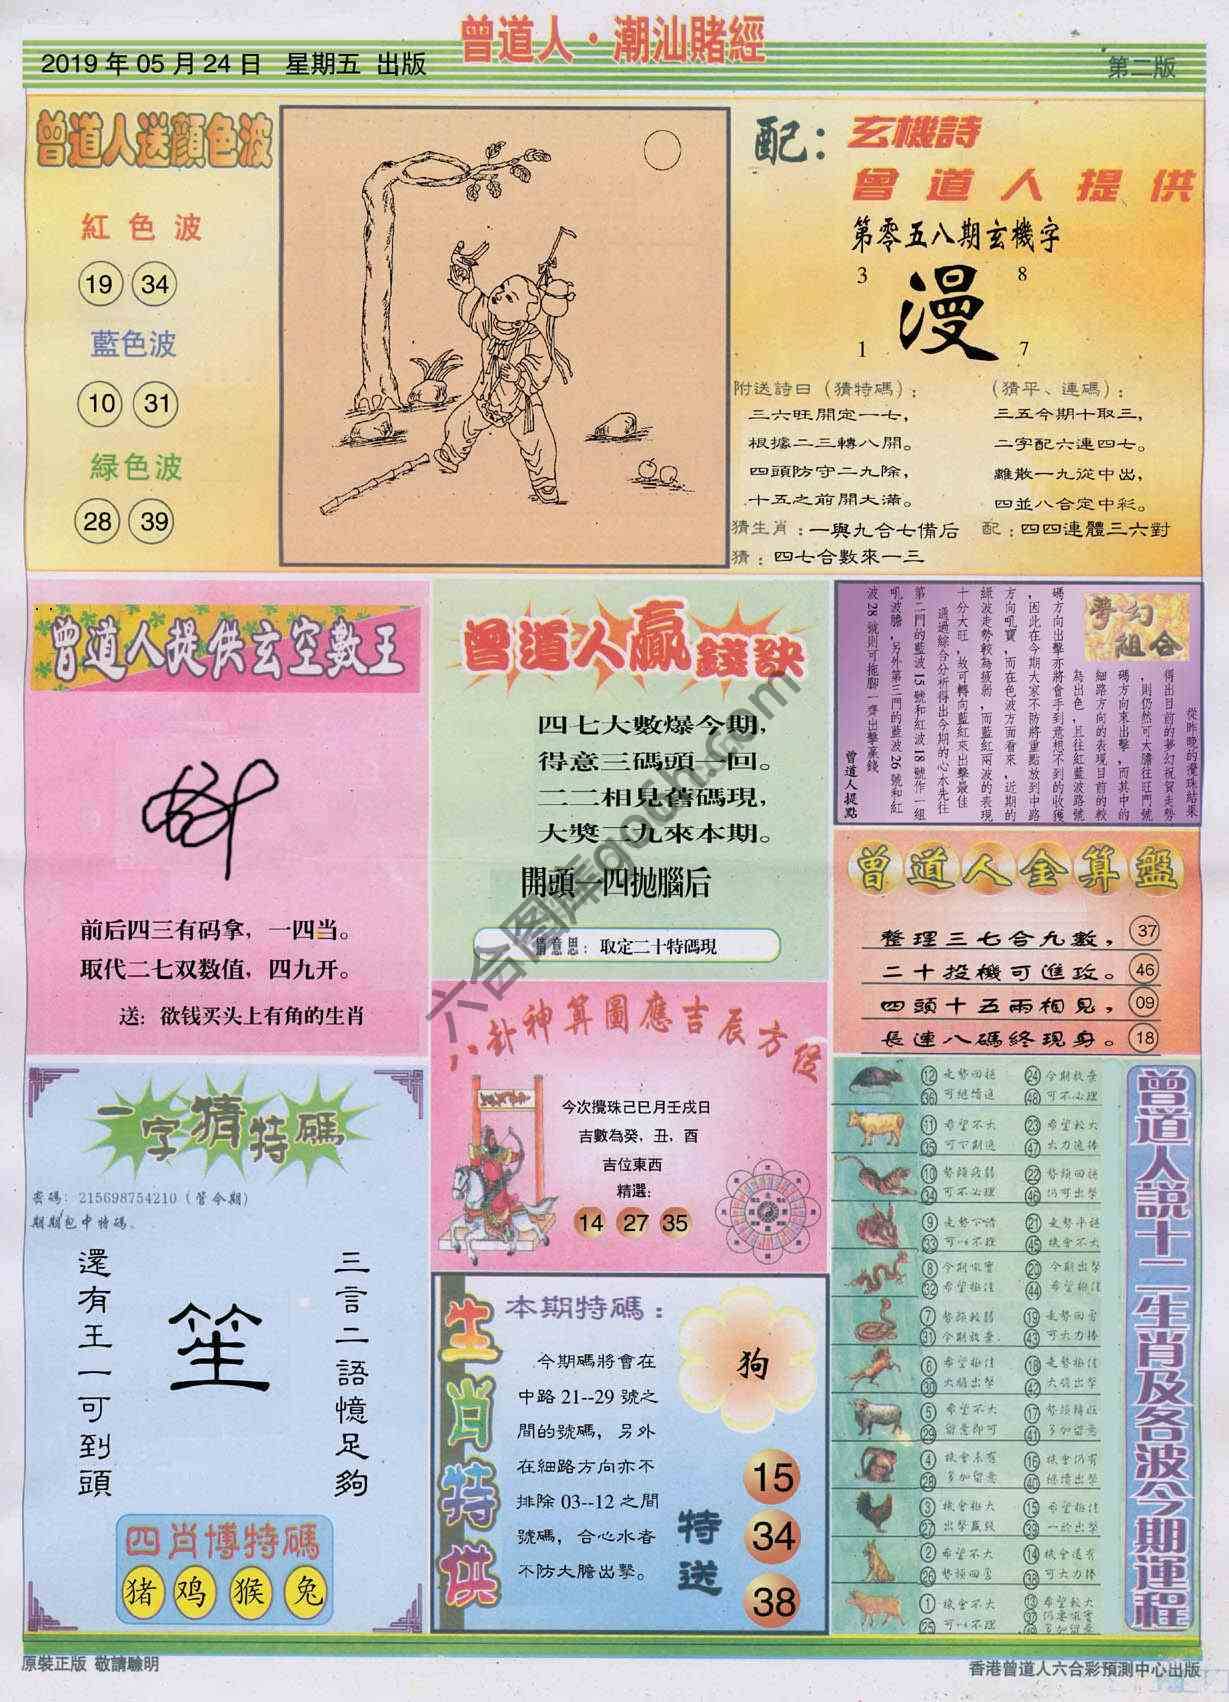 曾道人·潮汕賭經
2019年05月24日 星期五 出版
第二版
曾道人送顏色波
紅色波
19 34
藍色波
10 31
緑色波
28 39
配：玄機詩
曾道人提供
第零五八期玄機字
3 8
漫
1 7
附送詩曰（猜特碼）：
三六旺開定一七，
根據二三轉八開。
四頭防守二九除，
十五之前開大滿。
猜生肖：一與九合七備后
猜：四七合數來一三
（猜平、連碼）：
三五今期十取三，
二字配六連四七。
離散一九從中出，
四並八合定中彩。
配：四四連體三六對
曾道人提供玄空數王
前后四三有码拿，一四当。
取代二七双数值，四九开。
送：欲钱买头上有角的生肖
曾道人贏錢訣
四七大數爆今期，
得意三碼頭一回。
二二相見舊碼現，
大獎二九來本期。
開頭一四拋腦后
猜意思：取定二十特碼現
夢幻組合
從昨晚的攪珠結果
得出目前的夢幻祝賀走勢
，則仍然可大膽往旺門號
碼方向來出擊，而其中的
細路方向的表現目前的較
為出色，且往紅藍波路號
碼方向出擊亦將會手到意想不到的收獲
，因此在今期大家不防將重點放到中路
方向吼寶，而在色波方面看來，近期的
緑波走勢較為疲弱，而藍紅兩波的表現
十分大旺，故可轉向藍紅來出擊最佳
通過綜合分析得出今期的心水先往
第二門的藍波15號和紅波18號作一組
吼波膽，另外第三門的藍波26號和紅
波28號則可拖腳一齊出擊贏錢
曾道人提點
曾道人金算盤
整理三七合九數， 37
二十投機可進攻。 46
四頭十五兩相見， 09
長連八碼終現身。 18
八卦神算圖應吉辰方位
今次攪珠己巳月壬戌日
吉數為癸，丑，酉
吉位東西
精選：
14 27 35
一字猜特碼
密碼：215698754210（管今期）
期期包中特碼、
還有王一可到頭
笙
三言二語憶足夠
四肖博特碼
猪 鸡 猴 兔
生肖特供
本期特碼：
今期碼將會在
中路21--29號之
間的號碼，另外
在細路方向亦不
排除03--12之間
號碼，合心水者
不防大膽出擊。
狗
特送
15
34
38
曾道人説十二生肖及各波今期運程
12 36 走勢回穩 可繼續追 24 48 今期放棄 可不必理
11 35 希望不大 可下則追 23 47 希望較大 大力追捧
10 34 勢頭疲弱 可不必理 22 46 勢頭回穩 仍可出擊
9 33 走勢下滑 可以不理 21 45 走勢平穩 機會不大
8 32 今期吼寶 希望極佳 20 44 今期出擊 希望極佳
7 31 勢頭較弱 今期放棄 19 43 走勢回勇 可大力捧
6 30 希望極佳 大膽出擊 18 42 走勢極佳 大膽出擊
5 29 希望不大 留意即可 17 41 勢頭轉旺 多加留意
4 28 機會未有 多加留意 16 40 機會仍有 繼續出擊
3 27 機會極大 出擊贏錢 15 39 希望極佳 一於出擊
2 26 希望不大 勢頭回勇 14 38 機會還有 可大力捧
1 25 機會不大 可以不理 13 37 49 希望較大 仍要吼實 多加留意
原裝正版 敬請驗明
香港曾道人六合彩預測中心出版
六合图库go6h.com